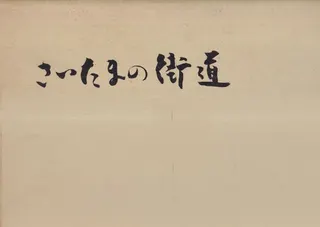 さいたまの街道